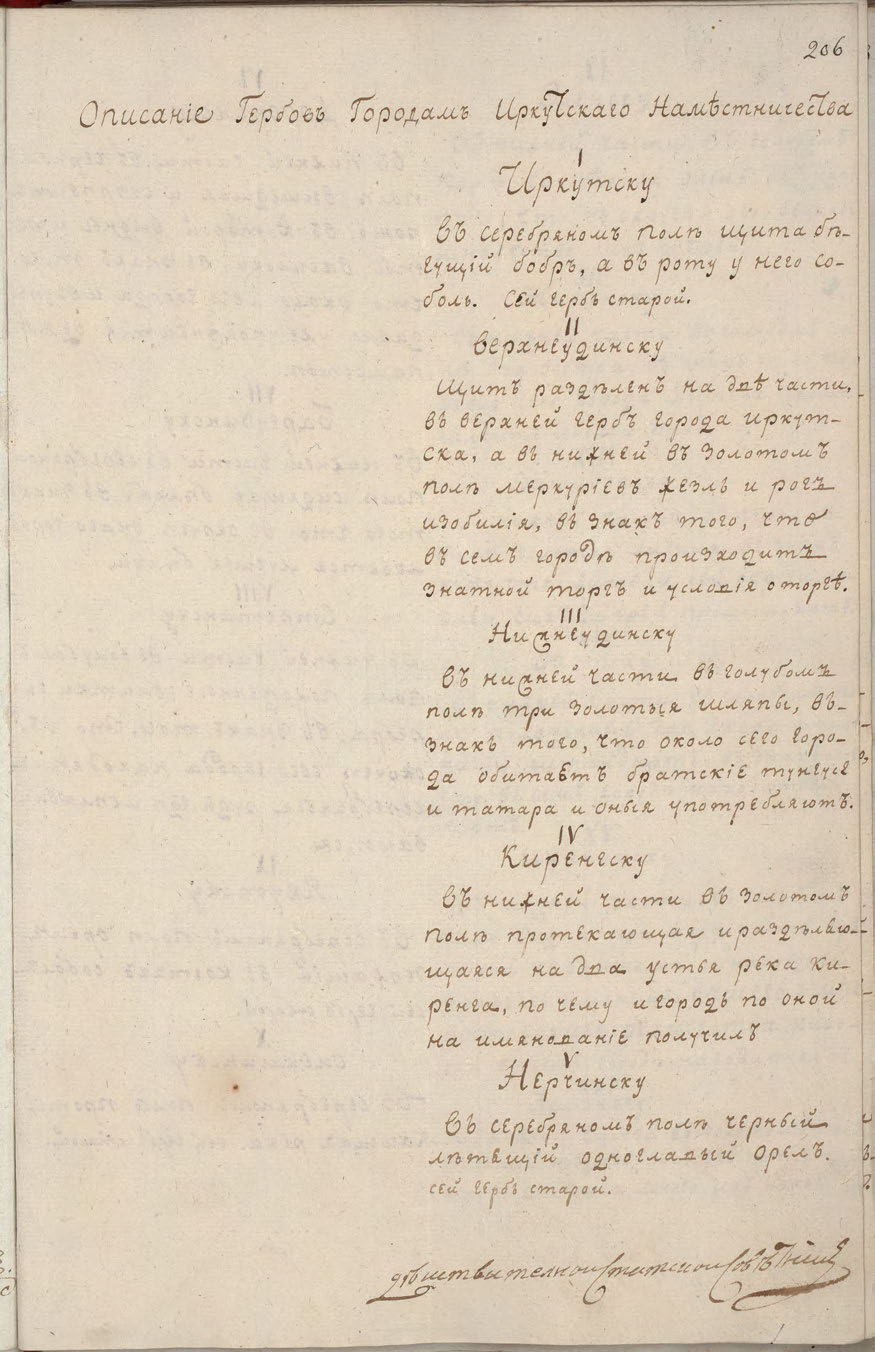 206
Описаніе Гербовъ Городамъ Иркутскаго Намѣстничества
I
Иркутску
Въ серебряномъ полѣ щита бѣ-
гущій бобръ, а въ роту у него со-
боль. Сей гербъ старой.
II
Верхнеудинску
Щитъ раздѣленъ на двѣ части,
въ верхней гербъ города Иркут-
ска, а въ нижней въ золотомъ
полѣ меркуріевъ жезлъ и рогъ
изобилія, въ знакъ того, что
въ семъ городѣ происходитъ
знатной торгъ и условія о торгѣ.
III
Нижнеудинску
Въ нижней части въ голубомъ
полѣ три золотыя шляпы, въ-
знакъ того, что около сего горо-
да обитаетъ братскіе тунгусе
и татара и оныя употребляютъ.
IV
Киренску
Въ нижней части въ золотомъ
полѣ протекающая и раздѣляю-
щаяся на два устья река Ки-
ренга, по чему и городъ по оной
на имянованіе получилъ
V
Нерчинску
Въ серебряномъ полѣ черный
лѣтящій одноглавый орелъ.
сей гербъ старой.
дѣйствителной Статской Совѣтникъ